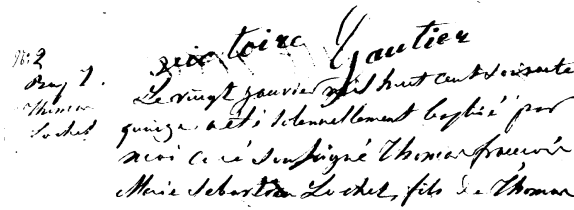 Gautier
No 2
Bap
Thomas
Lochet
Le vingt janvier mil huit cent soixante
quinze a été solennellement baptisé par
moi curé soussigné Thomas françois
Marie Sebastien Lochet, fils de Thomas